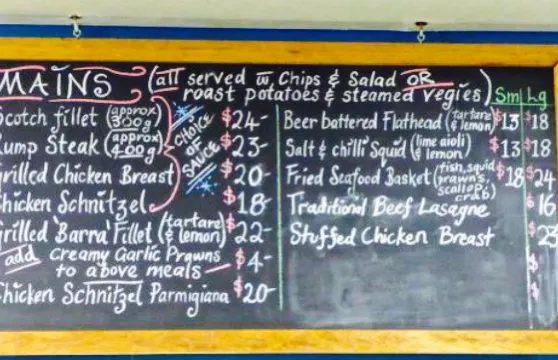 MAINS (all served w Chips & Salad OR
roast potatoes & steamed vegies)
cotch fillet (approx 350g) $24-
ump Steak (approx 400g) $23-
rilled Chicken Breast $20-
hicken Schnitzel $18-
CHOICE OF SAUCE
rilled 'Barra' Fillet (tartare & lemon) $22-
add Creamy Garlic Prawns
to above meals - $4-
hicken Schnitzel Parmigiana $20-
Sm Lg
Beer battered Flathead (tartare & lemon) $13 $18
Salt & chilli Squid (lime aioli & lemon) $13 $18
Fried Seafood Basket (fish, squid prawn's, scallop, crab) $18 $24
Traditional Beef Lasagne $16
Stuffed Chicken Breast $
$
$